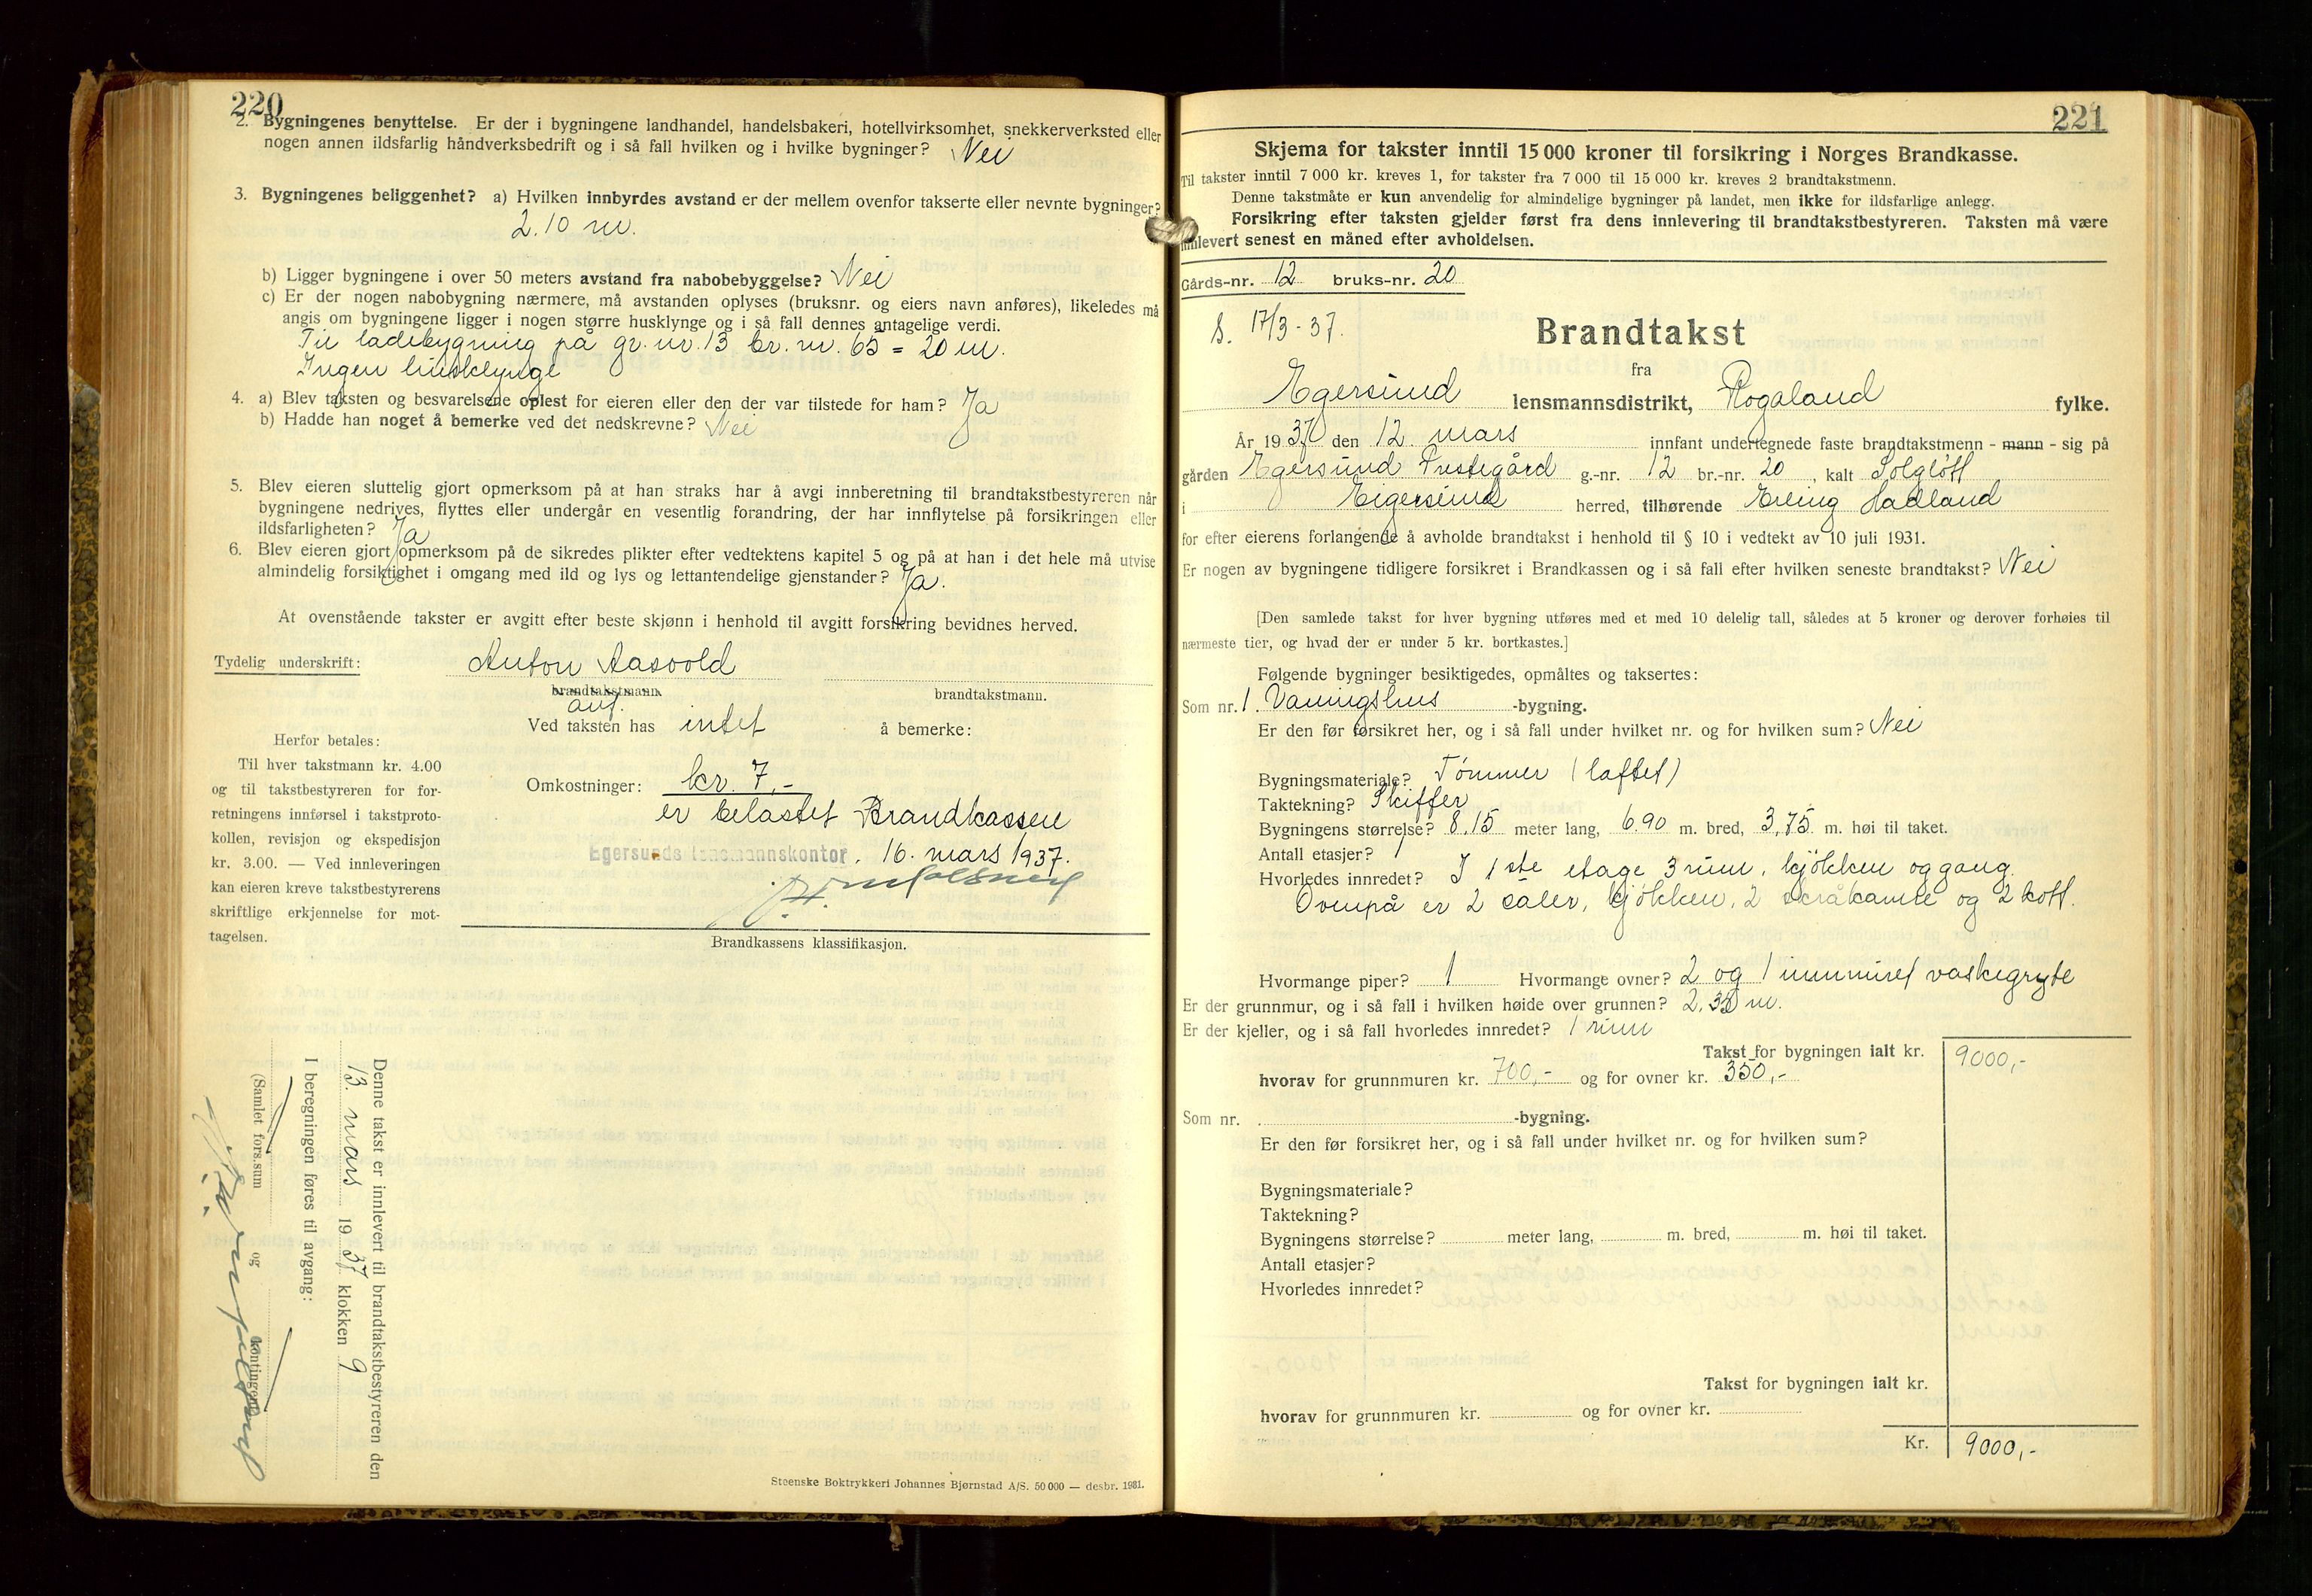 220
2. Bygningenes benyttelse. Er der i bygningene landhandel, handelsbakeri, hotellvirksomhet, snekkerverksted eller
nogen annen ildsfarlig håndverksbedrift og i så fall hvilken og i hvilke bygninger? Nei
3. Bygningenes beliggenhet? a) Hvilken innbyrdes avstand er der mellem ovenfor takserte eller nevnte bygninger?
2.10 m.
b) Ligger bygningene i over 50 meters avstand fra nabobebyggelse? Nei
c) Er der nogen nabobygning nærmere, må avstanden oplyses (bruksnr. og eiers navn anføres), likeledes må
angis om bygningene ligger i nogen større husklynge og i så fall dennes antagelige verdi.
Til ladebygning på gr. nr. 13 br. nr. 65 = 20 m.
Ingen husklynge
4. a) Blev taksten og besvarelsene oplest for eieren eller den der var tilstede for ham? Ja
b) Hadde han noget å bemerke ved det nedskrevne? Nei
5. Blev eieren sluttelig gjort opmerksom på at han straks har å avgi innberetning til brandtakstbestyreren når
bygningene nedrives, flyttes eller undergår en vesentlig forandring, der har innflytelse på forsikringen eller
ildsfarligheten? Ja
6. Blev eieren gjort opmerksom på de sikredes plikter efter vedtektens kapitel 5 og på at han i det hele må utvise
almindelig forsiktighet i omgang med ild og lys og lettantendelige gjenstander? Ja.
At ovenstående takster er avgitt efter beste skjønn i henhold til avgitt forsikring bevidnes herved.
Tydelig underskrift: Anton Aasvold
brandtakstmann. brandtakstmann.
Ved taksten has intet å bemerke:
Herfor betales:
Til hver takstmann kr. 4.00
og til takstbestyreren for for-
retningens innførsel i takstproto-
kollen, revisjon og ekspedisjon
kr. 3.00. — Ved innleveringen
kan eieren kreve takstbestyrerens
skriftlige erkjennelse for mot-
tagelsen.
Omkostninger: kr. 7,-
er belastet Brandkassen
Egersunds lensmannskontor, 16. mars 1937.
Brandkassens klassifikasjon.
Denne takst er innlevert til brandtakstbestyreren den
13. mars 1937 klokken 9
I beregningen føres til avgang:
(Samlet fors.sum og kontingent)
Steenske Boktrykkeri Johannes Bjørnstad A/S. 50 000 — desbr. 1931.
221
Skjema for takster inntil 15 000 kroner til forsikring i Norges Brandkasse.
Til takster inntil 7 000 kr. kreves 1, for takster fra 7 000 til 15 000 kr. kreves 2 brandtakstmenn.
Denne takstmåte er kun anvendelig for almindelige bygninger på landet, men ikke for ildsfarlige anlegg.
Forsikring efter taksten gjelder først fra dens innlevering til brandtakstbestyreren. Taksten må være
innlevert senest en måned efter avholdelsen.
Gårds-nr. 12 bruks-nr. 20
S. 17/3-37.
Brandtakst
fra
Egersund lensmannsdistrikt, Rogaland fylke.
År 1937 den 12. mars innfant undertegnede faste brandtakstmenn - mann - sig på
gården Egersund Prestegård g.-nr. 12 br.-nr. 20, kalt Solgløtt
i Eigersund herred, tilhørende Erling Hadland
for efter eierens forlangende å avholde brandtakst i henhold til § 10 i vedtekt av 10 juli 1931.
Er nogen av bygningene tidligere forsikret i Brandkassen og i så fall efter hvilken seneste brandtakst? Nei
[Den samlede takst for hver bygning utføres med et med 10 delelig tall, således at 5 kroner og derover forhøies til
nærmeste tier, og hvad der er under 5 kr. bortkastes.]
Følgende bygninger besiktigedes, opmåltes og taksertes:
Som nr. 1. Vaningshus -bygning.
Er den før forsikret her, og i så fall under hvilket nr. og for hvilken sum? Nei
Bygningsmateriale? Tømmer (laftet)
Taktekning? Skiffer
Bygningens størrelse? 8,15 meter lang, 6.90 m. bred, 3,75 m. høi til taket.
Antall etasjer? 1
Hvorledes innredet? I 1ste etage 3 rum, kjøkken og gang.
Ovenpå er 2 saler, kjøkken, 2 skråkamre og 2 kott.
Hvormange piper? 1 Hvormange ovner? 2 og 1 innmuret vaskegryte
Er der grunnmur, og i så fall i hvilken høide over grunnen? 2,30 m.
Er der kjeller, og i så fall hvorledes innredet? 1 rum
Takst for bygningen ialt kr. 9000,-
hvorav for grunnmuren kr. 700,- og for ovner kr. 350,-
Som nr. -bygning.
Er den før forsikret her, og i så fall under hvilket nr. og for hvilken sum?
Bygningsmateriale?
Taktekning?
Bygningens størrelse? meter lang, m. bred, m. høi til taket.
Antall etasjer?
Hvorledes innredet?
Takst for bygningen ialt kr.
hvorav for grunnmuren kr. og for ovner kr.
Kr. 9000,-